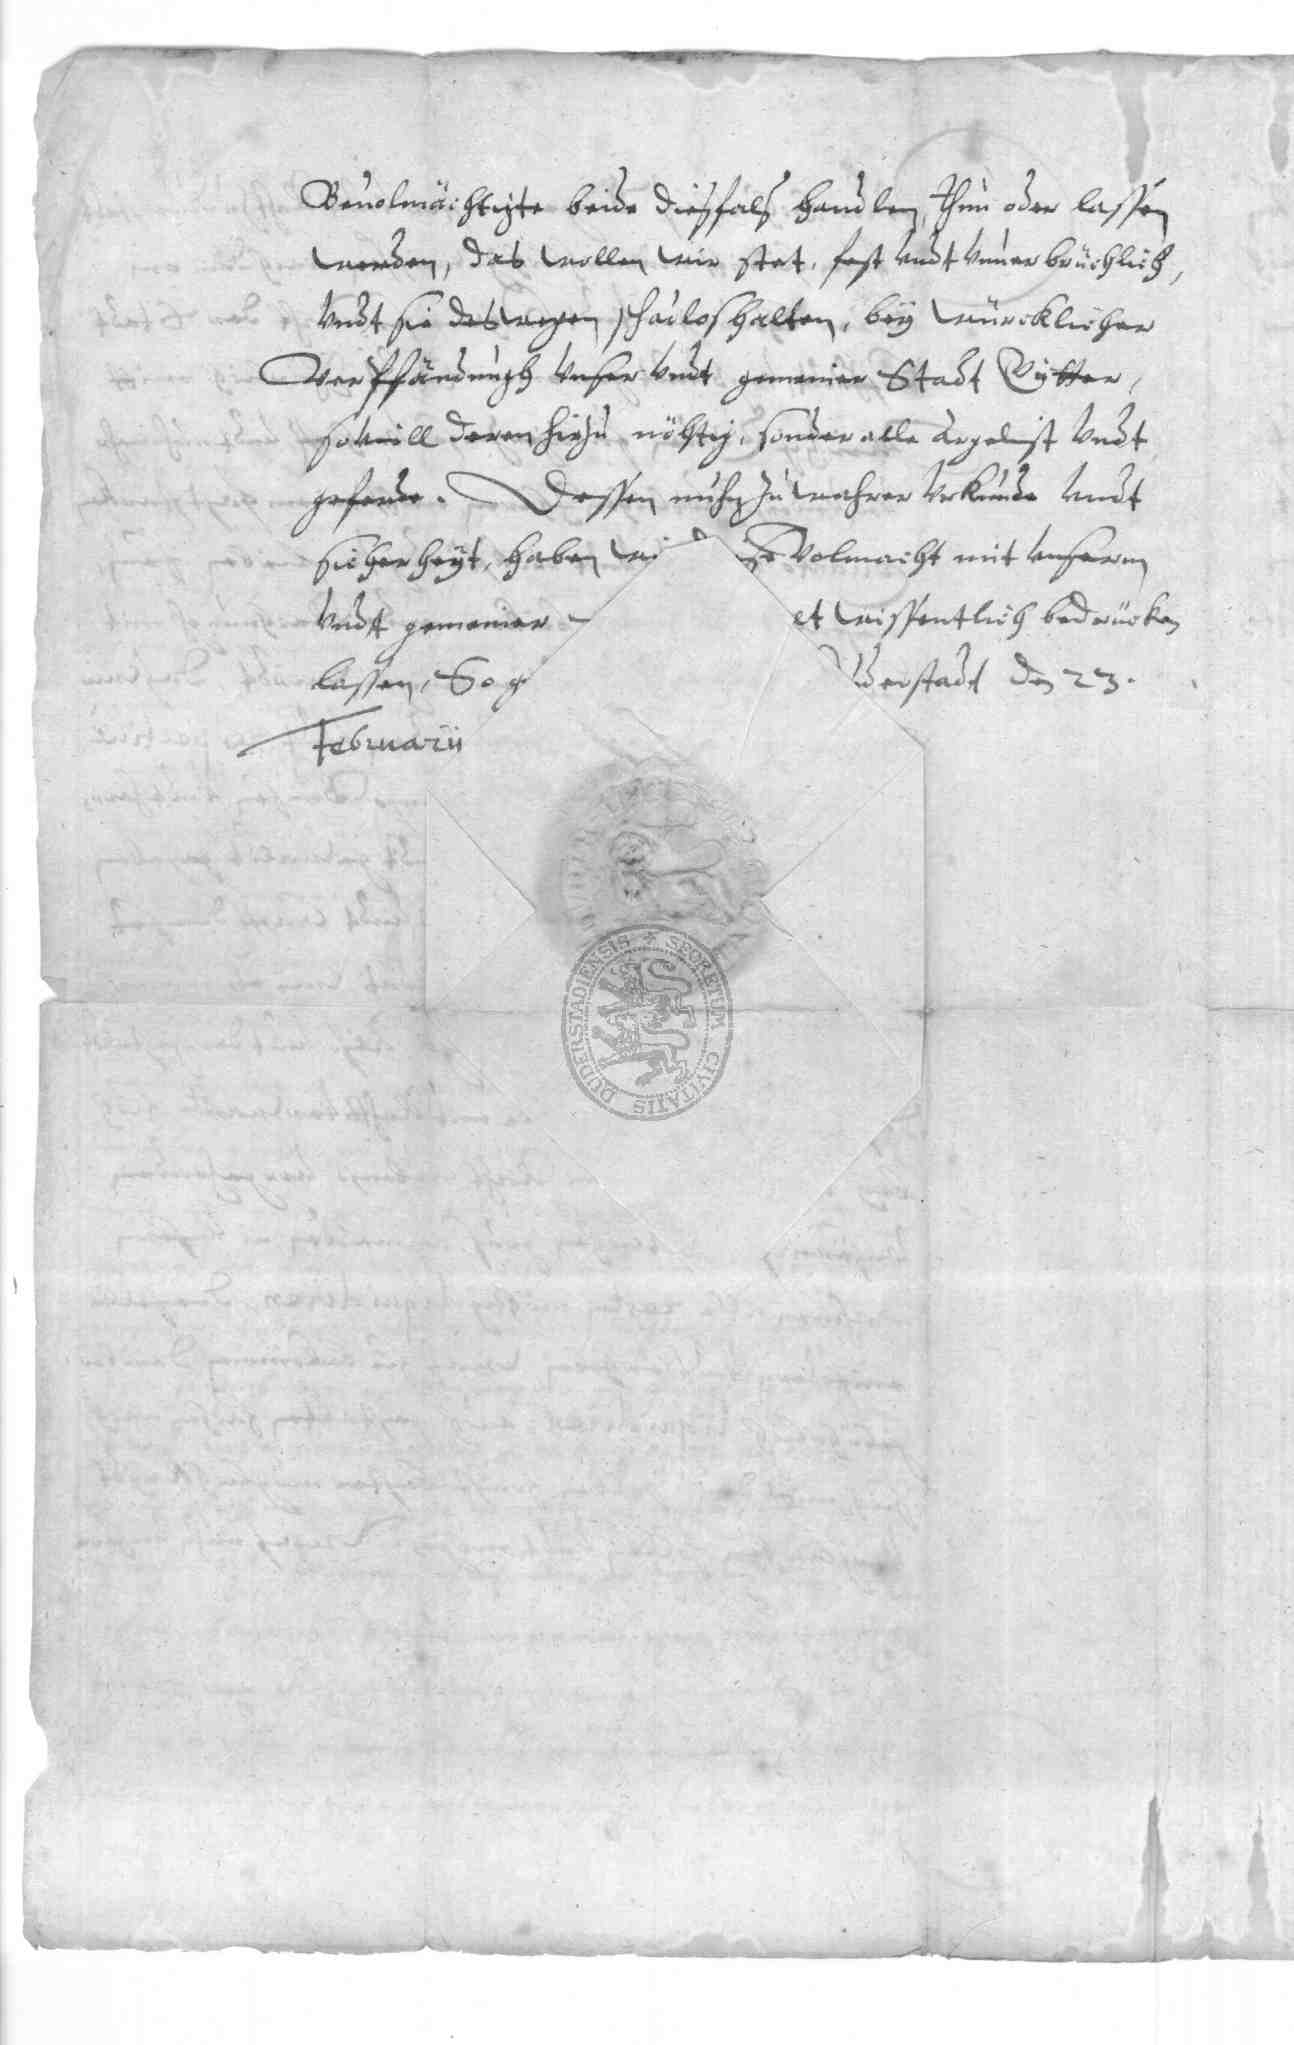 Beuolmächtigte beide diesfals handlen, thun oder lassen
werden, das wollen wir stet, fest vndt vnuerbrüchlich,
vndt sie deswegen schadlos halten, bey würcklicher
Verpfändungh vnser vndt gemeiner Stadt Gütter,
souill deren hirzu nöhtig, sonder alle argelist vndt
geferde. Dessen nuhn zu wahrer Vrkunde vndt
sicherheyt, haben wi se Volmacht mit vnserm
vndt gemeiner et wissentlich bedrücken
lassen, So g derstadt den 23.
Februarii
SECRETUM CIVITATIS DUDERSTADIENSIS